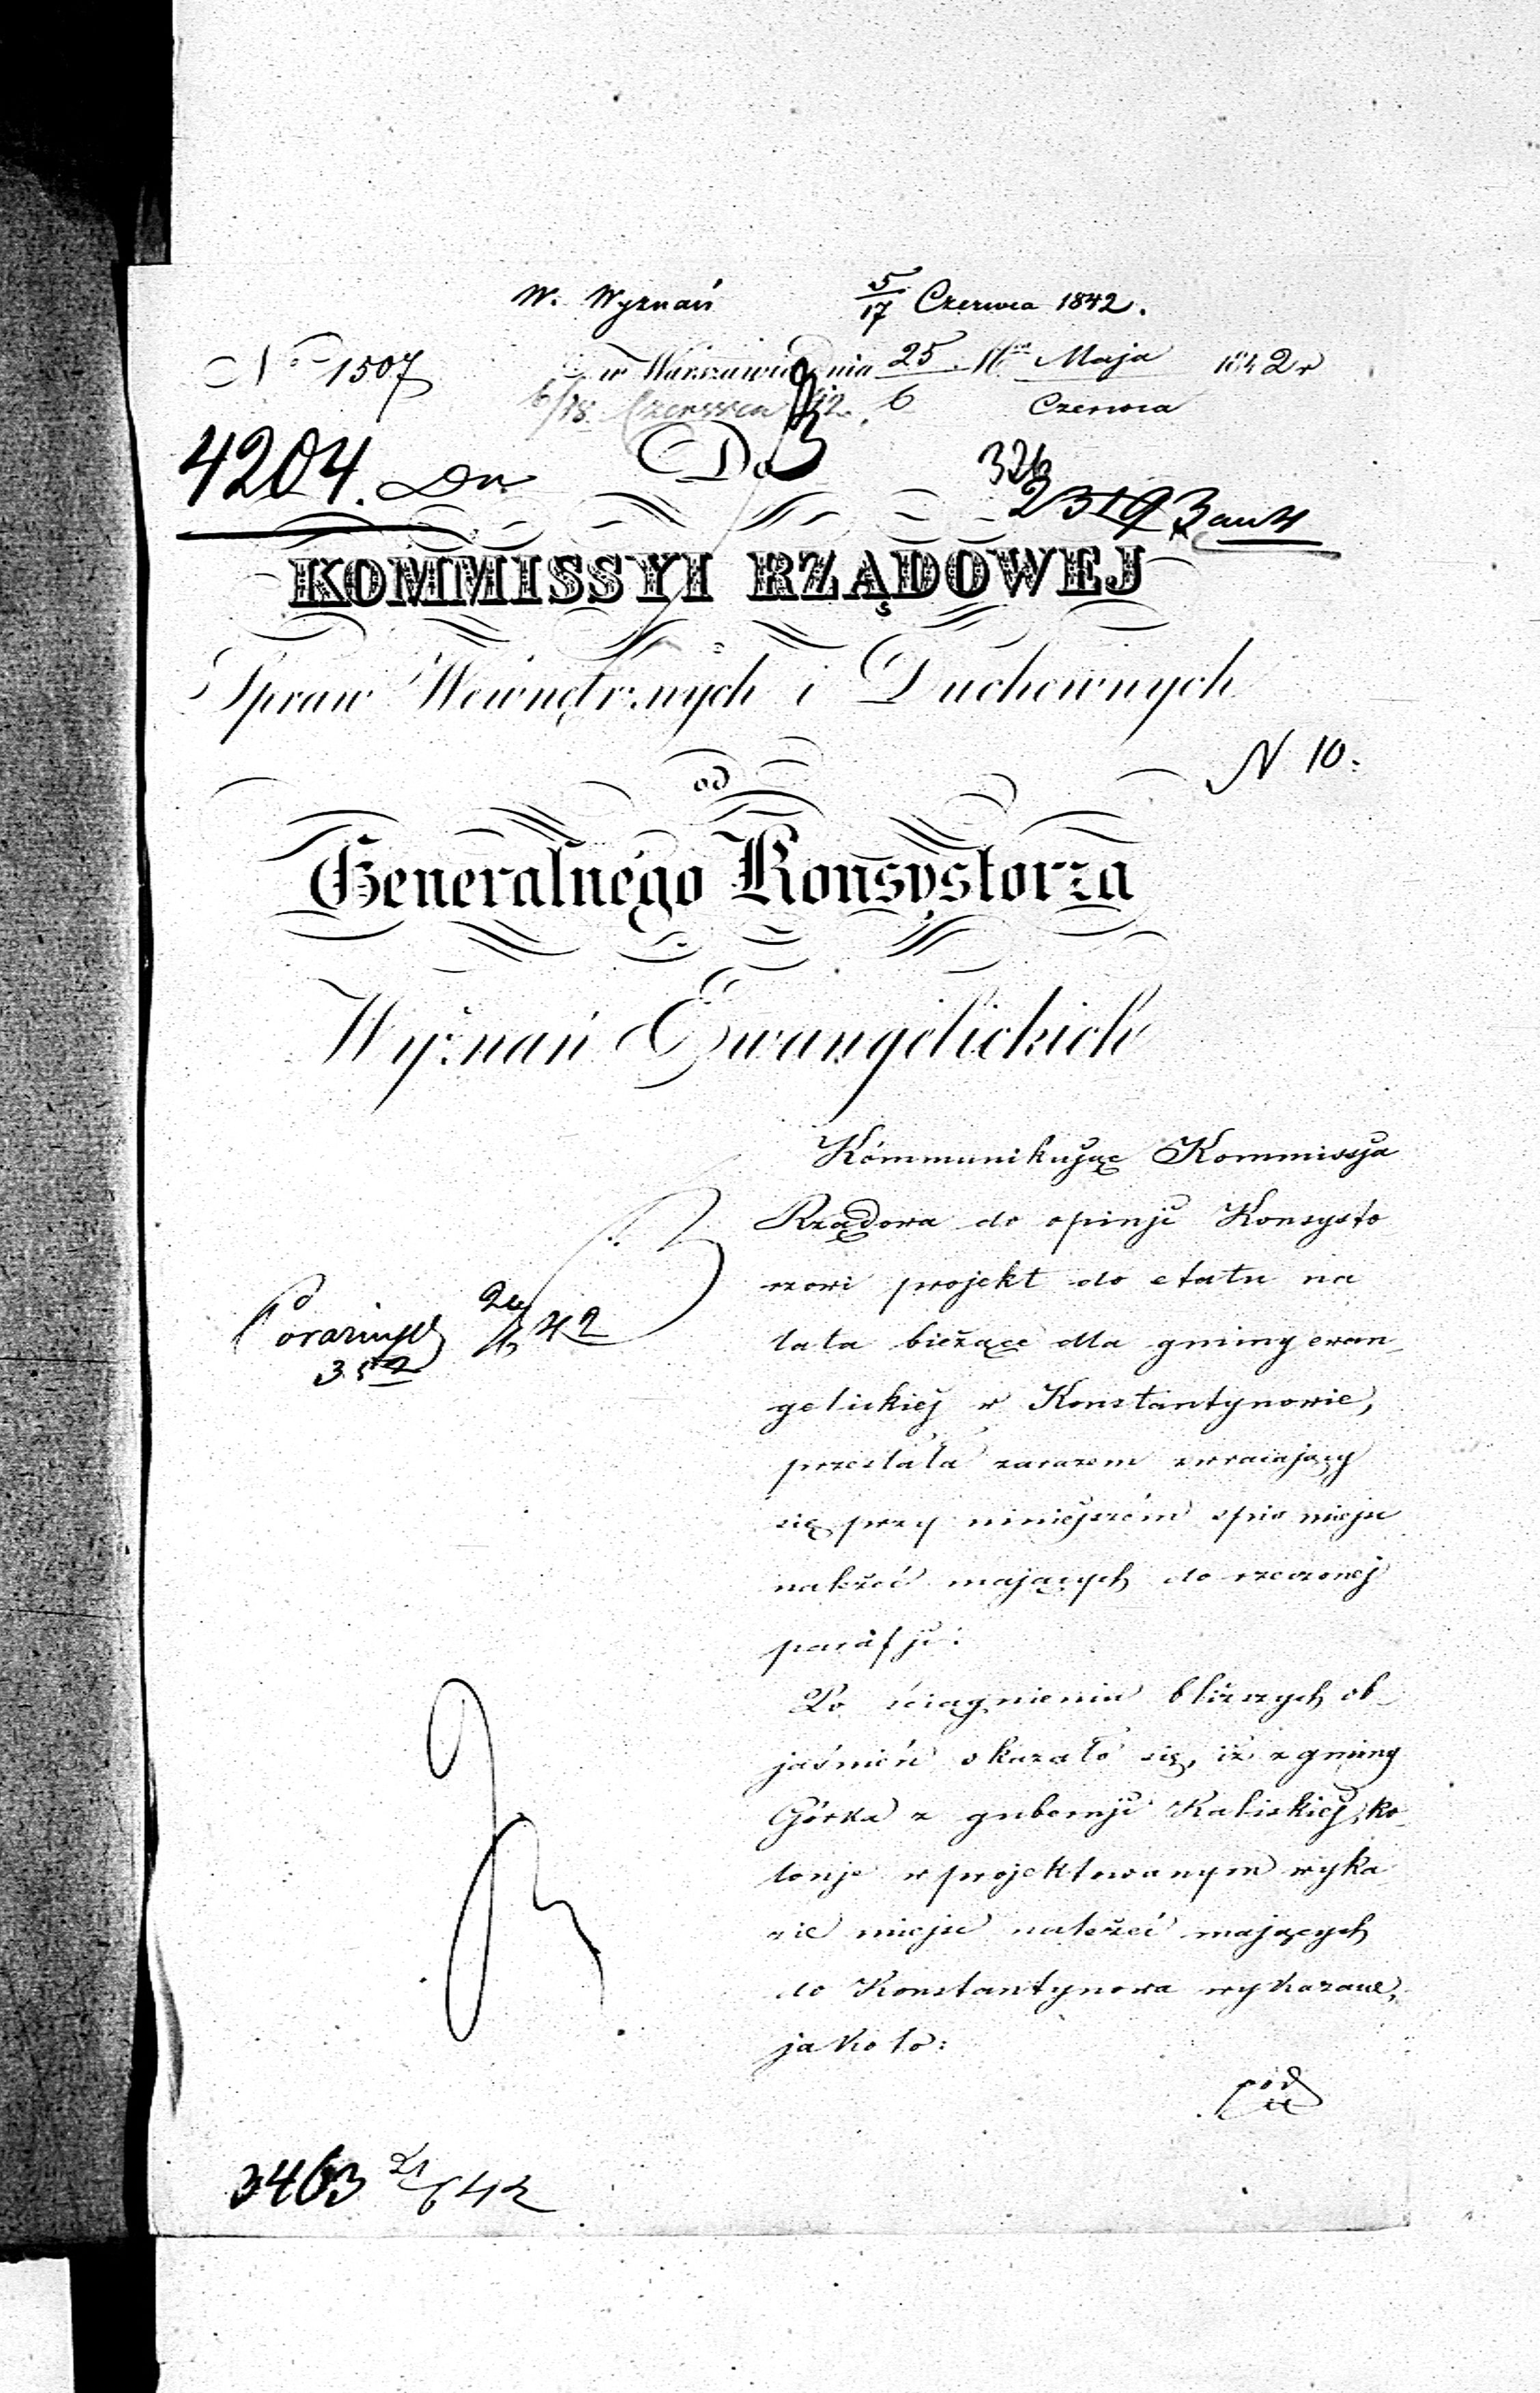 W. Wyznań 5/17 Czerwca 1842.
No 1507
w Warszawie dnia 25 Maja 1842 r
6/18 Czerwca 42. 6 Czerwca
4204.
Do
2319
KOMMISSYI RZĄDOWEJ
Spraw Wewnętrznych i Duchownych
N 10.
od
Generalnégo Konsystorza
Wyznań Ewangelickich
Kommunikując Kommissja
Rządowa do opinji Konsysto
rzowi projekt do etatu na
lata bieżące dla gminy ewan_
gelickiéj w Konstantynowie,
przesłała zarazem zwracający
się przy niniejszém spis miejsc
należeć mających do rzeczonéj
parafji.
Po ściągnieniu bliższych ob_
jaśnień okazało się, iż z gminy
Górka z gubernji Kaliskiéj, ko_
lonje w projektowanym wyka
zie miejsc należeć mających
do Konstantynowa wykazane,
jako to:
pod
3463 21/6 42